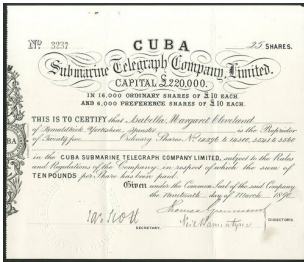 Nº 3237 CUBA 25 SHARES.
Submarine Telegraph Company, Limited.
CAPITAL £220,000.
IN 16,000 ORDINARY SHARES OF £10 EACH.
AND 6,000 PREFERENCE SHARES OF £10 EACH.
THIS IS TO CERTIFY that Isabella Margaret Cleveland
of Yorkshire, spinster is the Proprietor
of Twenty five Ordinary Shares Nos
in the CUBA SUBMARINE TELEGRAPH COMPANY LIMITED, subject to the Rules
and Regulations of the Company, in respect of which the sum of
TEN POUNDS per Share has been paid.
Given under the Common Seal of the said Company
the nineteenth day of March
SECRETARY.
DIRECTORS.